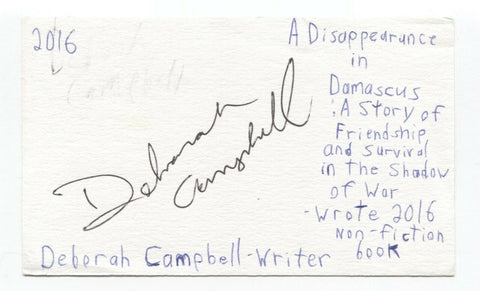 2016
Campbell
A Disappearance
in
Damascus
: A Story of
Friendship
and Survival
in the Shadow
of War
- Wrote 2016
Non-fiction
book
Deborah
Campbell
Deborah Campbell-Writer